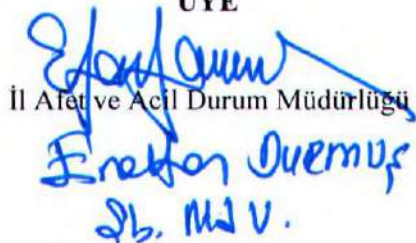 ÜYE
İl Afet ve Acil Durum Müdürlüğü
DURMUŞ
Şb. Md V.